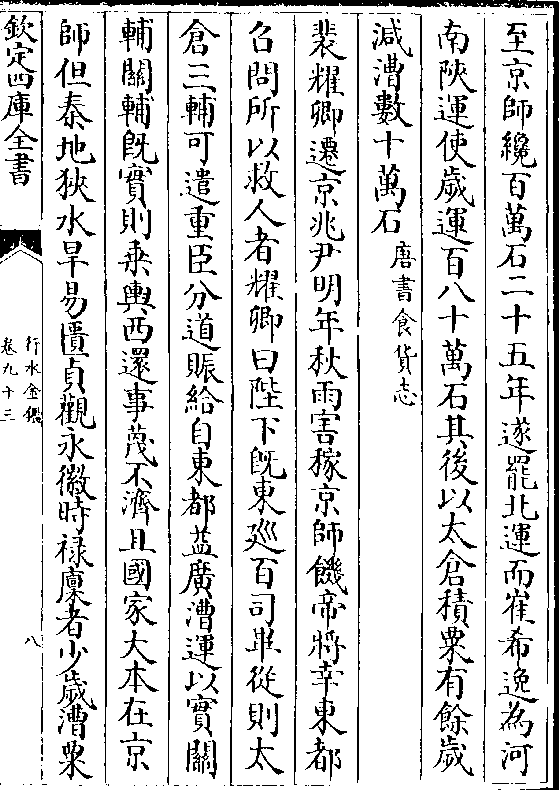 至京師纔百萬石二十五年遂罷北運而崔希逸為河
南陜運使歲運百八十萬石其後以太倉積粟有餘歲
減漕數十萬石唐書食貨志
裴耀卿遷京兆尹明年秋雨害稼京師饑帝將幸東都
召問所以救人者耀卿曰陛下既東廵百司畢從則太
倉三輔可遣重臣分道賑給自東都益廣漕運以實關
輔關輔既實則乘輿西還事蔑不濟且國家大本在京
師但秦地狹水旱易匱貞觀永徽時祿廩者少歲漕粟
欽定四庫全書
行水金鑑
卷九十三
八